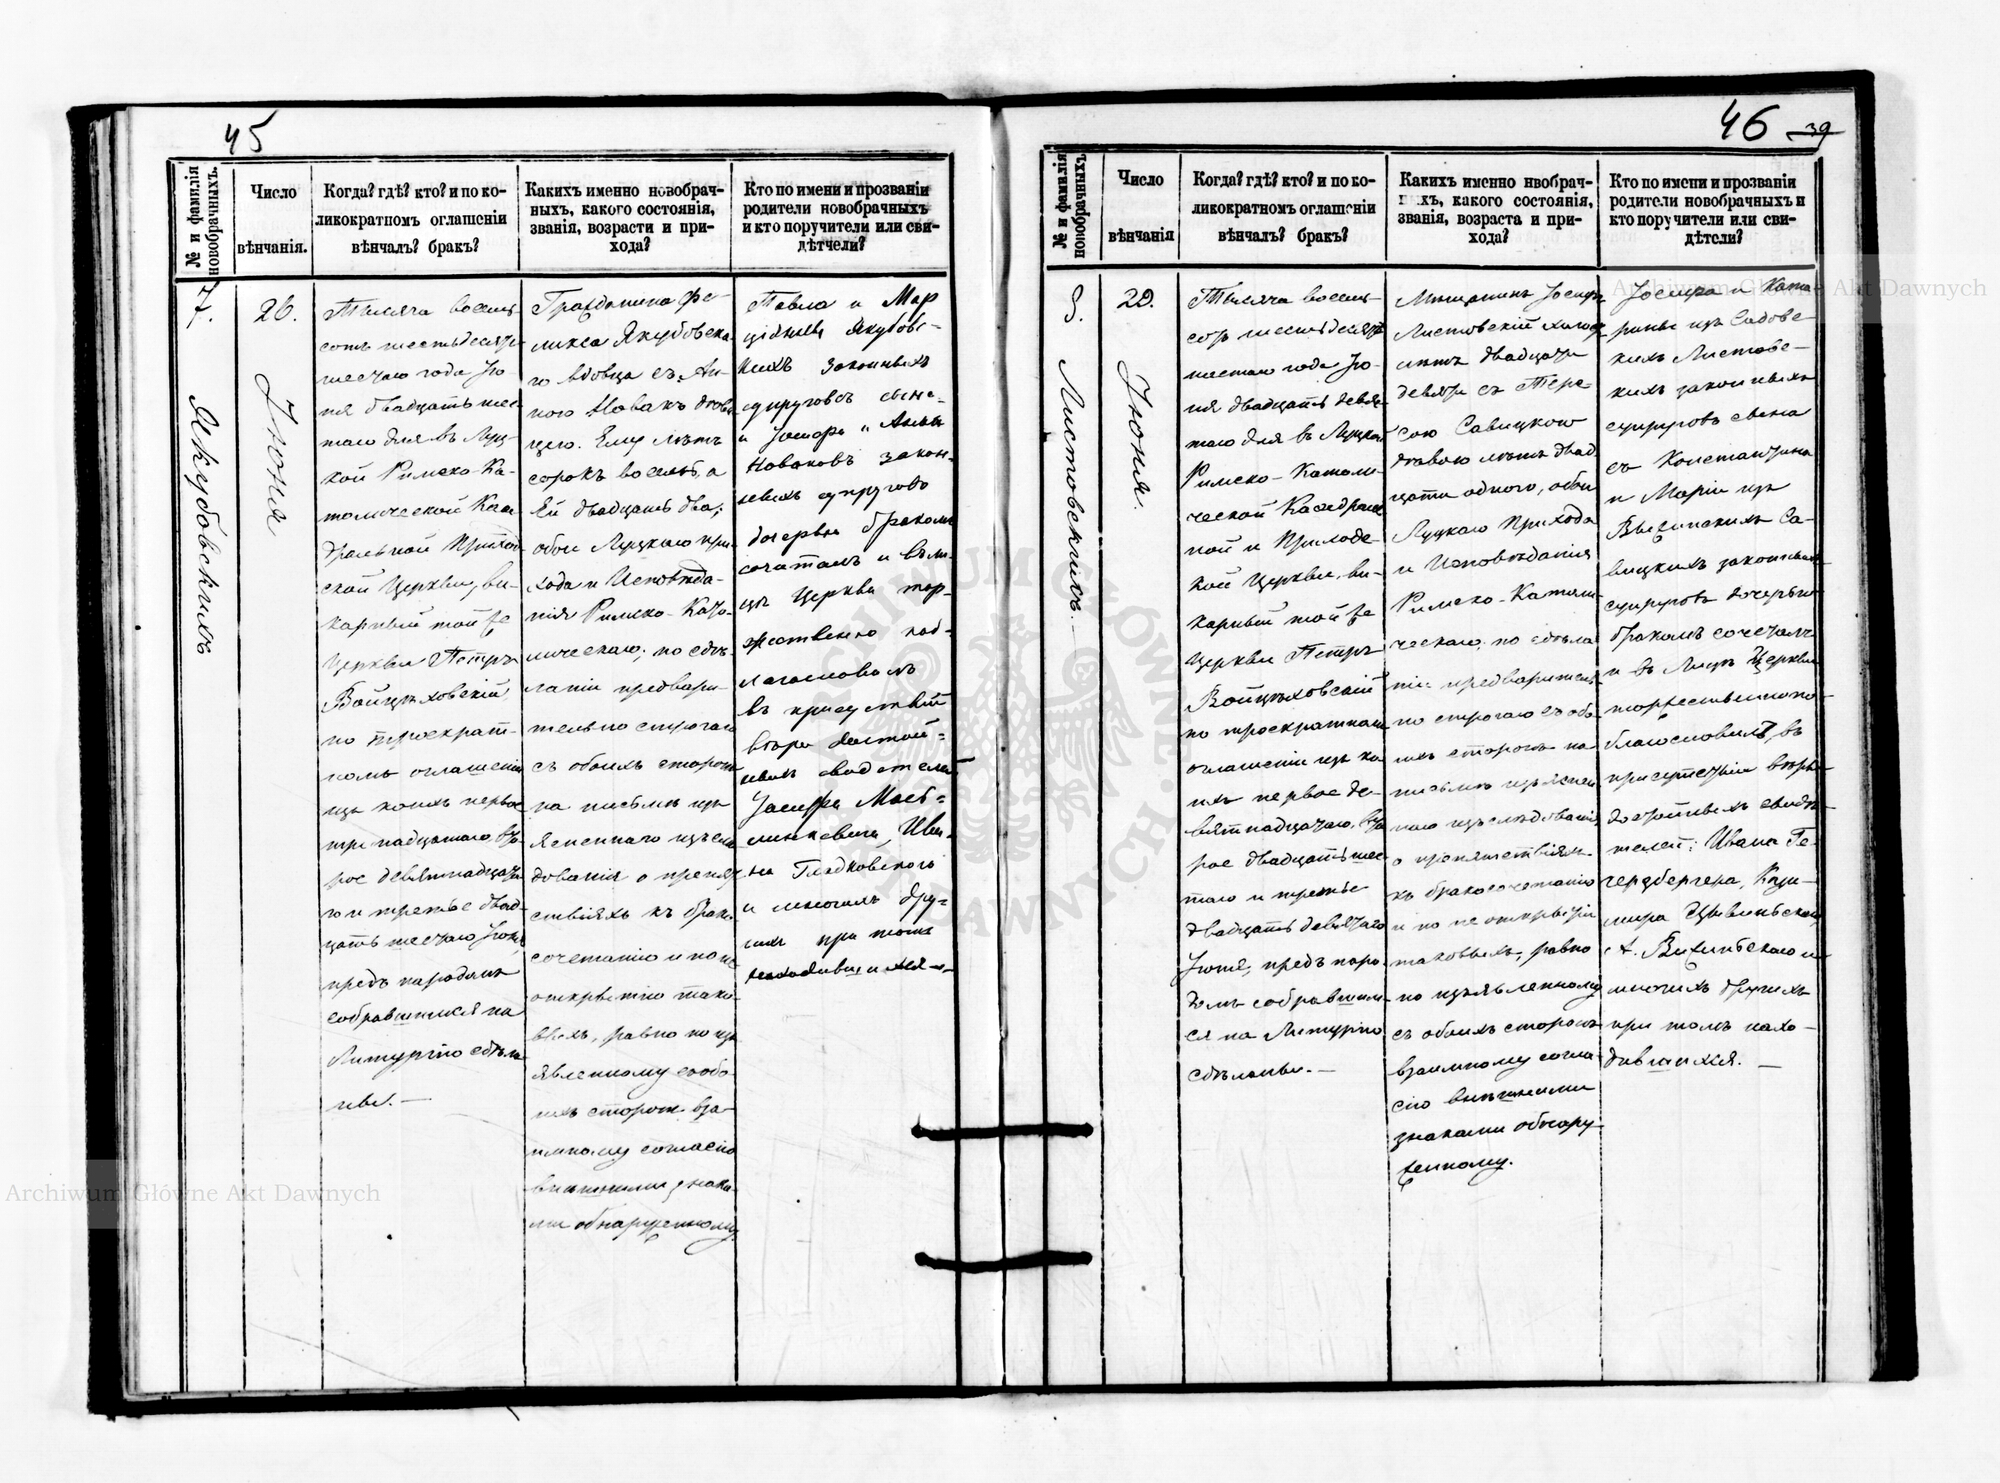 45
№ и фамилія
новобрачныхъ.
Число
вѣнчанія.
Когда? гдѣ? кто? и по ко-
ликократномъ оглашеніи
вѣнчалъ? бракъ?
Какихъ именно новобрач-
ныхъ, какого состоянія,
званія, возрасти и при-
хода?
Кто по имени и прозванію
родители новобрачныхъ
и кто поручители или сви-
дѣтчели?
7.
Якубовскихъ
26.
Іюня
Тысяча восемь-
сотъ шестьдесятъ
шестаго года Ію-
ня двадцать шес-
таго дня въ Луц-
кой Римско-Ка-
толической Каѳе
дральной Приход
ской Церкви, ви-
карный той же
Церкви Петръ
Войцѣховскій,
по троекрат-
номъ оглашеніи
изъ коихъ первое
три надцатаго, вто-
рое девятнадцата-
го и третье двад-
цать шестаго Іюня,
предъ народомъ
собравшимся на
Литургію сдѣла
ны.—
Гражданина Фе-
ликса Якубовска-
го вдовца съ Ан-
ною Новакъ дѣви
цею. Ему лѣтъ
сорокъ восемь, а
Ей двадцать два;
обои Луцкаго при-
хода и Исповѣда-
нія Римско-Като-
лическаго; по сдѣ-
ланіи предвари-
тельно строгаго
съ обоихъ сторонъ
на письмѣ изъ
ясненнаго изъслѣ
дованія о препят
ствіяхъ къ брако
сочетанію и по не
открытію тако-
выхъ, равно по изъ
явленному съ обо-
ихъ сторонъ вза-
имному согласію
внѣшними знака-
ми обнаруженному.
Павла и Мар
ціанны Якубовс-
кихъ законныхъ
супруговъ сына-
и Іосифа и Анны
Новаковъ закон-
ныхъ супруговъ
дочерью бракомъ
сочеталъ и въ ли-
цѣ Церкви тор-
жественно наб-
лагословилъ
въ присутствіи
вѣры достой-
ныхъ свидѣтелей
Іосифа
Ива-
на Гладковскаго
и многихъ дру-
гихъ при томъ
находившихся.—
46
39
№ и фамилія
новобрачныхъ.
Число
вѣнчанія
Когда? гдѣ? кто? и по ко-
ликократномъ оглашеніи
вѣнчалъ? бракъ?
Какихъ именно нвобрач-
ыхъ, какого состоянія,
званія, возраста и при-
хода?
Кто по имени и прозванію
родители новобрачныхъ и
кто поручители или сви-
дѣтели?
8.
Листовскихъ.—
29.
Іюня.
Тысяча восемь-
сотъ шестьдесятъ
шестаго года Ію-
ня двадцать девя-
таго дня въ Луцкой
Римско-Католи-
ческой Каѳедраль
ной и Приходс-
кой Церкви, ви-
карный той же
Церкви Петръ
Войцѣховскій
по троекратномъ
оглашеніи изъ ко-
ихъ первое де-
вятнадцатаго, вто
рое двадцать шес
таго и третье
двадцать девятаго
Іюня, предъ наро-
домъ собравшим-
ся на Литургію
сдѣланы.—
Мѣщанинъ Іосифъ
Листовскій холос
лѣтъ двадцати
девяти съ Тере
сою Савицкою
дѣвою лѣтъ двад
цати одного, обои
Луцкаго Прихода
и Исповѣданія
Римско-Католи
ческаго, по сдѣла
ніи предваритель
но строгаго съ обо
ихъ сторонъ на
письмѣ изъяснен
наго изъслѣдованія,
о препятствіяхъ
къ бракосочетанію
и по не открытіи
таковыхъ, равно
по изъявленному
съ обоихъ сторонъ
взаимному согла-
сію внѣшними
знаками обнару-
женному.
Іосифа и Ката
рины изъ Садовс-
кихъ Листовс-
кихъ законныхъ
супруговъ сына
съ Константина
и Маріи изъ
Са-
вицкихъ законныхъ
супруговъ дочерью
бракомъ сочеталъ
и въ Лицѣ Церкви
торжественно по-
благословилъ, въ
присутствіи вѣры
достойныхъ свидѣ-
телей: Ивана Ге-
Кази-
мира
А. и
многихъ другихъ
при томъ нахо-
дившихся.—
Archiwum Główne Akt Dawnych
Archiwum Główne Akt Dawnych
ARCHIWUM GŁÓWNE AKT DAWNYCH